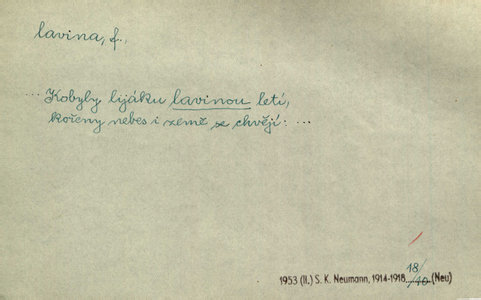 lavina, f.
... Kobyly lijáku lavinou letí,
kořeny nebes i země se chvějí: ...
18/
1953 (II.) S. K. Neumann, 1914-1918 /10 (Neu)